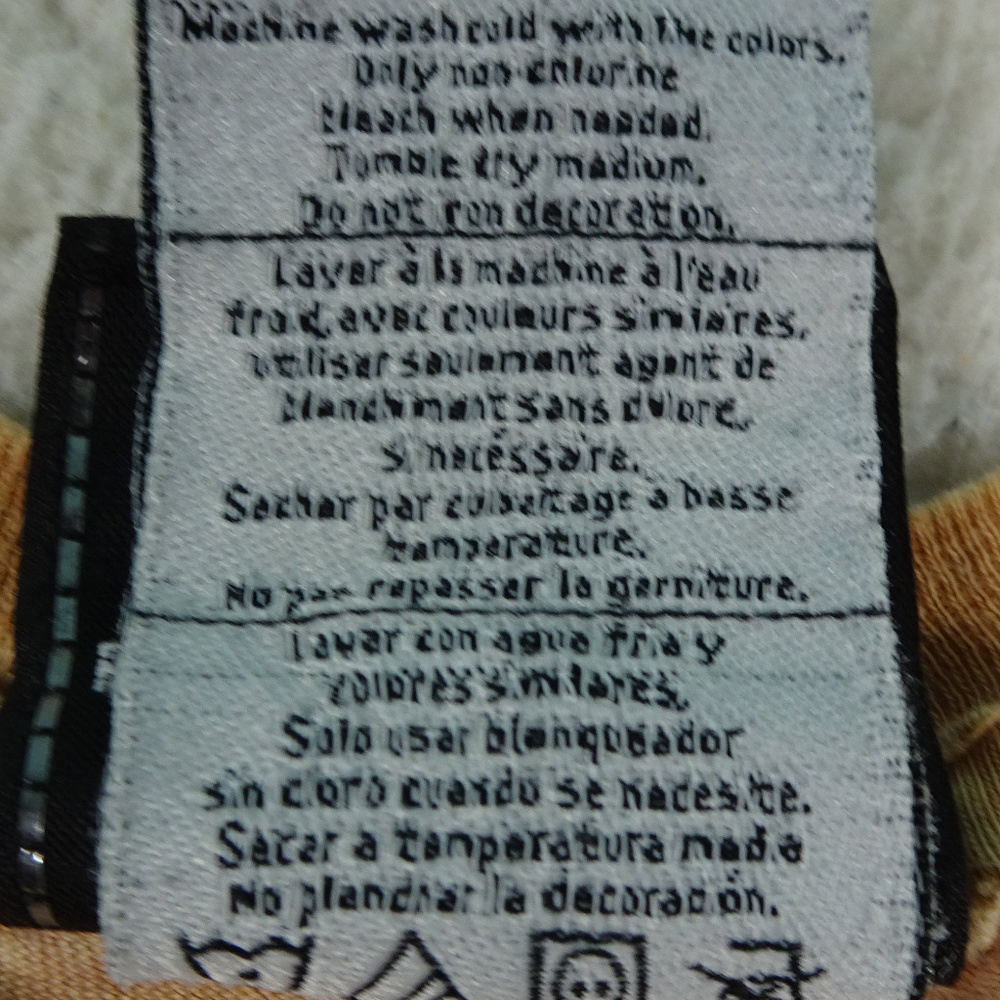 Machine wash cold with like colors.
Only non-chlorine
bleach when needed.
Tumble dry medium.
Do not iron decoration.
Laver à la machine à l'eau
froid, avec couleurs similaires,
utiliser seulement agent de
blanchiment sans chlore,
si nécessaire.
Sécher par culbutage à basse
température.
No pas repasser la garniture.
Lavar con agua fria y
colores similares.
Solo usar blanqueador
sin cloro cuando se necesite.
Secar a temperatura media
No planchar la decoración.